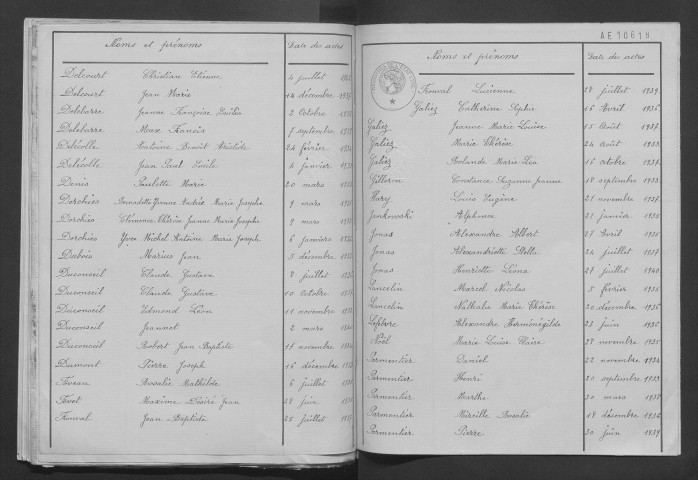 Noms et prénoms Date des actes
Delcourt Christian Etienne 4 juillet
Delcourt Jean Marie 14 décembre
Delebarre Jeanne Françoise 2 octobre
Delebarre Max Francis 7 septembre
Delécolle Antoine Benoit 24 février
Delécolle Jean Paul Emile 4 janvier
Denis Paulette Marie 20 mars
Dorchies Bernadette Yvonne Andrée Marie Josephe 9 mars
Dorchies Clémence Thérèse Jeanne Marie Josephe 9 mars
Dorchies Yves Michel Antoine Marie Joseph 6 janvier
Dubois Marius Jean 5 décembre
Duconseil Claude Gustave 8 juillet
Duconseil Claude Gustave 10 octobre
Duconseil Edmond Léon 11 novembre
Duconseil Jeannot 2 mars
Duconseil Robert Jean Baptiste 17 novembre
Dumont Pierre Joseph 16 décembre
Rosalie Mathilde 6 juillet
Maxime Désiré Jean 28 juin
Jean Baptiste 25 juillet
AE 10618
Noms et prénoms Date des actes
Lucienne 28 juillet 1939
Galiez Catherine Sophie 16 Avril 1936
Galiez Jeanne Marie Louise 15 Août 1937
Galiez Marie Thérèse 24 août 1933
Galiez Rolande Marie Léa 16 octobre 1937
Constance Suzanne Jeanne 18 septembre 1933
Louis Eugène 21 novembre 1937
Jankowski Alphonse 21 janvier 1935
Jonas Alexandre Albert 27 Avril 1935
Jonas Alexandriette Stella 24 juillet 1937
Jonas Henriette Léona 27 juillet 1940
Lancelin Marcel Nicolas 5 février 1936
Lancelin Nathalie Marie Thérèse 20 décembre 1936
Lefebvre Alexandre Herménégilde 23 juin 1935
Noël Marie Louise Claire 28 novembre 1935
Parmentier Daniel 22 novembre 1934
Parmentier Henri 20 septembre 1933
Parmentier Marthe 30 mars
Parmentier Mireille Rosalie 18 décembre 1936
Parmentier Pierre 30 juin 1939